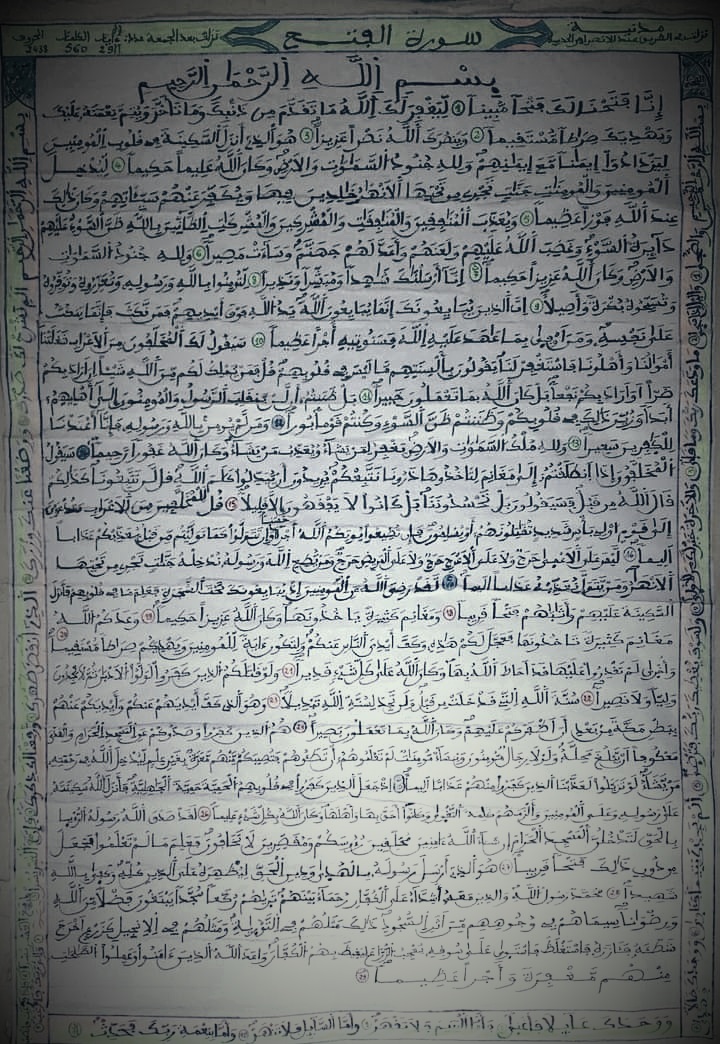 سورة الفتح
مدنية
نزلت بعد الجمعة
560
2438
بسم الله الرحمن الرحيم
إنا فتحنا لك فتحا مبينا 1 ليغفر لك الله ما تقدم من ذنبك وما تأخر ويتم نعمته عليك
ويهديك صراطا مستقيما 2 وينصرك الله نصرا عزيزا 3 هو الذي أنزل السكينة في قلوب المومنين
ليزدادوا إيمانا مع إيمانهم ولله جنود السماوات والأرض وكان الله عليما حكيما 4 ليدخل
المومنين والمومنات جنات تجري من تحتها الأنهار خالدين فيها ويكفر عنهم سيئاتهم وكان ذلك
عند الله فوزا عظيما 5 ويعذب المنافقين والمنافقات والمشركين والمشركات الظانين بالله ظن السوء عليهم
دائرة السوء وغضب الله عليهم ولعنهم وأعد لهم جهنم وساءت مصيرا 6 ولله جنود السماوات
والأرض وكان الله عزيزا حكيما 7 إنا أرسلناك شاهدا ومبشرا ونذيرا 8 لتومنوا بالله ورسوله وتعزروه وتوقروه
وتسبحوه بكرة وأصيلا 9 إن الذين يبايعونك إنما يبايعون الله يد الله فوق أيديهم فمن نكث فإنما ينكث
على نفسه ومن أوفى بما عاهد عليه الله فسنوتيه أجرا عظيما 10 سيقول لك المخلفون من الأعراب شغلتنا
أموالنا وأهلونا فاستغفر لنا يقولون بألسنتهم ما ليس في قلوبهم قل فمن يملك لكم من الله شيئا إن أراد بكم
ضرا أو أراد بكم نفعا بل كان الله بما تعملون خبيرا 11 بل ظننتم أن لن ينقلب الرسول والمومنون إلى أهليهم
أبدا وزين ذلك في قلوبكم وظننتم ظن السوء وكنتم قوما بورا 12 ومن لم يومن بالله ورسوله فإنا أعتدنا
للكافرين سعيرا 13 ولله ملك السماوات والأرض يغفر لمن يشاء ويعذب من يشاء وكان الله غفورا رحيما 14 سيقول
المخلفون إذا انطلقتم إلى مغانم لتاخذوها ذرونا نتبعكم يريدون أن يبدلوا كلام الله قل لن تتبعونا كذلكم
قال الله من قبل فسيقولون بل تحسدوننا بل كانوا لا يفقهون إلا قليلا 15 قل للمخلفين من الأعراب ستدعون
إلى قوم أولي بأس شديد تقاتلونهم أو يسلمون فإن تطيعوا يوتكم الله أجرا حسنا وإن تتولوا كما توليتم من قبل يعذبكم عذابا
أليما 16 ليس على الأعمى حرج ولا على الأعرج حرج ولا على المريض حرج ومن يطع الله ورسوله ندخله جنات تجري من تحتها
الأنهار ومن يتول نعذبه عذابا أليما 17 لقد رضي الله عن المومنين إذ يبايعونك تحت الشجرة فعلم ما في قلوبهم فأنزل
السكينة عليهم وأثابهم فتحا قريبا 18 ومغانم كثيرة ياخذونها وكان الله عزيزا حكيما 19 وعدكم الله
مغانم كثيرة تاخذونها فعجل لكم هذه وكف أيدي الناس عنكم ولتكون ءاية للمومنين ويهديكم صراطا مستقيما 20
وأخرى لم تقدروا عليها قد أحاط الله بها وكان الله على كل شيء قديرا 21 ولو قاتلكم الذين كفروا لولوا الأدبار ثم لا يجدون
وليا ولا نصيرا 22 سنة الله التي قد خلت من قبل ولن تجد لسنة الله تبديلا 23 وهو الذي كف أيديهم عنكم وأيديكم عنهم
ببطن مكة من بعد أن أظفركم عليهم وكان الله بما تعملون بصيرا 24 هم الذين كفروا وصدوكم عن المسجد الحرام والهدي
معكوفا أن يبلغ محله ولولا رجال مومنون ونساء مومنات لم تعلموهم أن تطئوهم فتصيبكم منهم معرة بغير علم ليدخل الله في رحمته
من يشاء لو تزيلوا لعذبنا الذين كفروا منهم عذابا أليما 25 إذ جعل الذين كفروا في قلوبهم الحمية حمية الجاهلية فأنزل الله سكينته
على رسوله وعلى المومنين وألزمهم كلمة التقوى وكانوا أحق بها وأهلها وكان الله بكل شيء عليما 26 لقد صدق الله رسوله الرءيا
بالحق لتدخلن المسجد الحرام إن شاء الله ءامنين محلقين رءوسكم ومقصرين لا تخافون فعلم ما لم تعلموا فجعل
من دون ذلك فتحا قريبا 27 هو الذي أرسل رسوله بالهدى ودين الحق ليظهره على الدين كله وكفى بالله
شهيدا 28 محمد رسول الله والذين معه أشداء على الكفار رحماء بينهم تراهم ركعا سجدا يبتغون فضلا من الله
ورضوانا سيماهم في وجوههم من أثر السجود ذلك مثلهم في التوراة ومثلهم في الإنجيل كزرع أخرج
شطئه فئازره فاستغلظ فاستوى على سوقه يعجب الزراع ليغيظ بهم الكفار وعد الله الذين ءامنوا وعملوا الصالحات
منهم مغفرة وأجرا عظيما 29
بسم الله الرحمن الرحيم ألم نشرح لك صدرك ووضعنا عنك وزرك الذي أنقض ظهرك ورفعنا لك ذكرك
بسم الله الرحمن الرحيم والضحى والليل إذا سجى ما ودعك ربك وما قلى وللآخرة خير لك من الأولى ولسوف يعطيك ربك فترضى ألم يجدك يتيما فآوى ووجدك ضالا
ووجدك عائلا فأغنى فأما اليتيم فلا تقهر وأما السائل فلا تنهر وأما بنعمة ربك فحدث